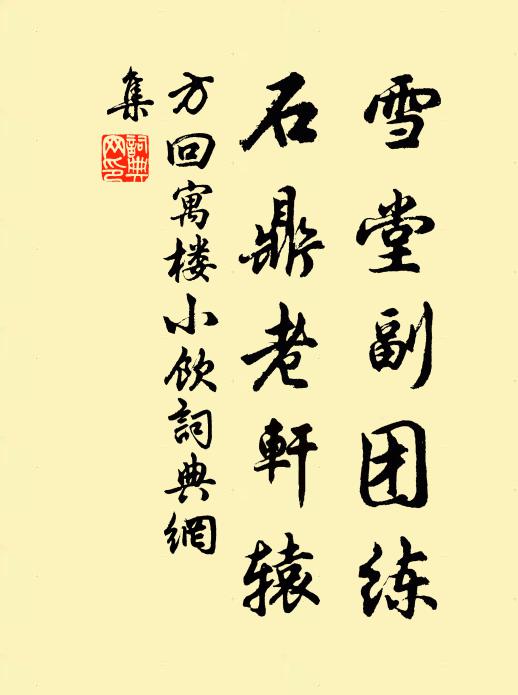 雪堂副团练
石鼎老軒辕
方回寓楼小饮詞典網
集
詞典网印